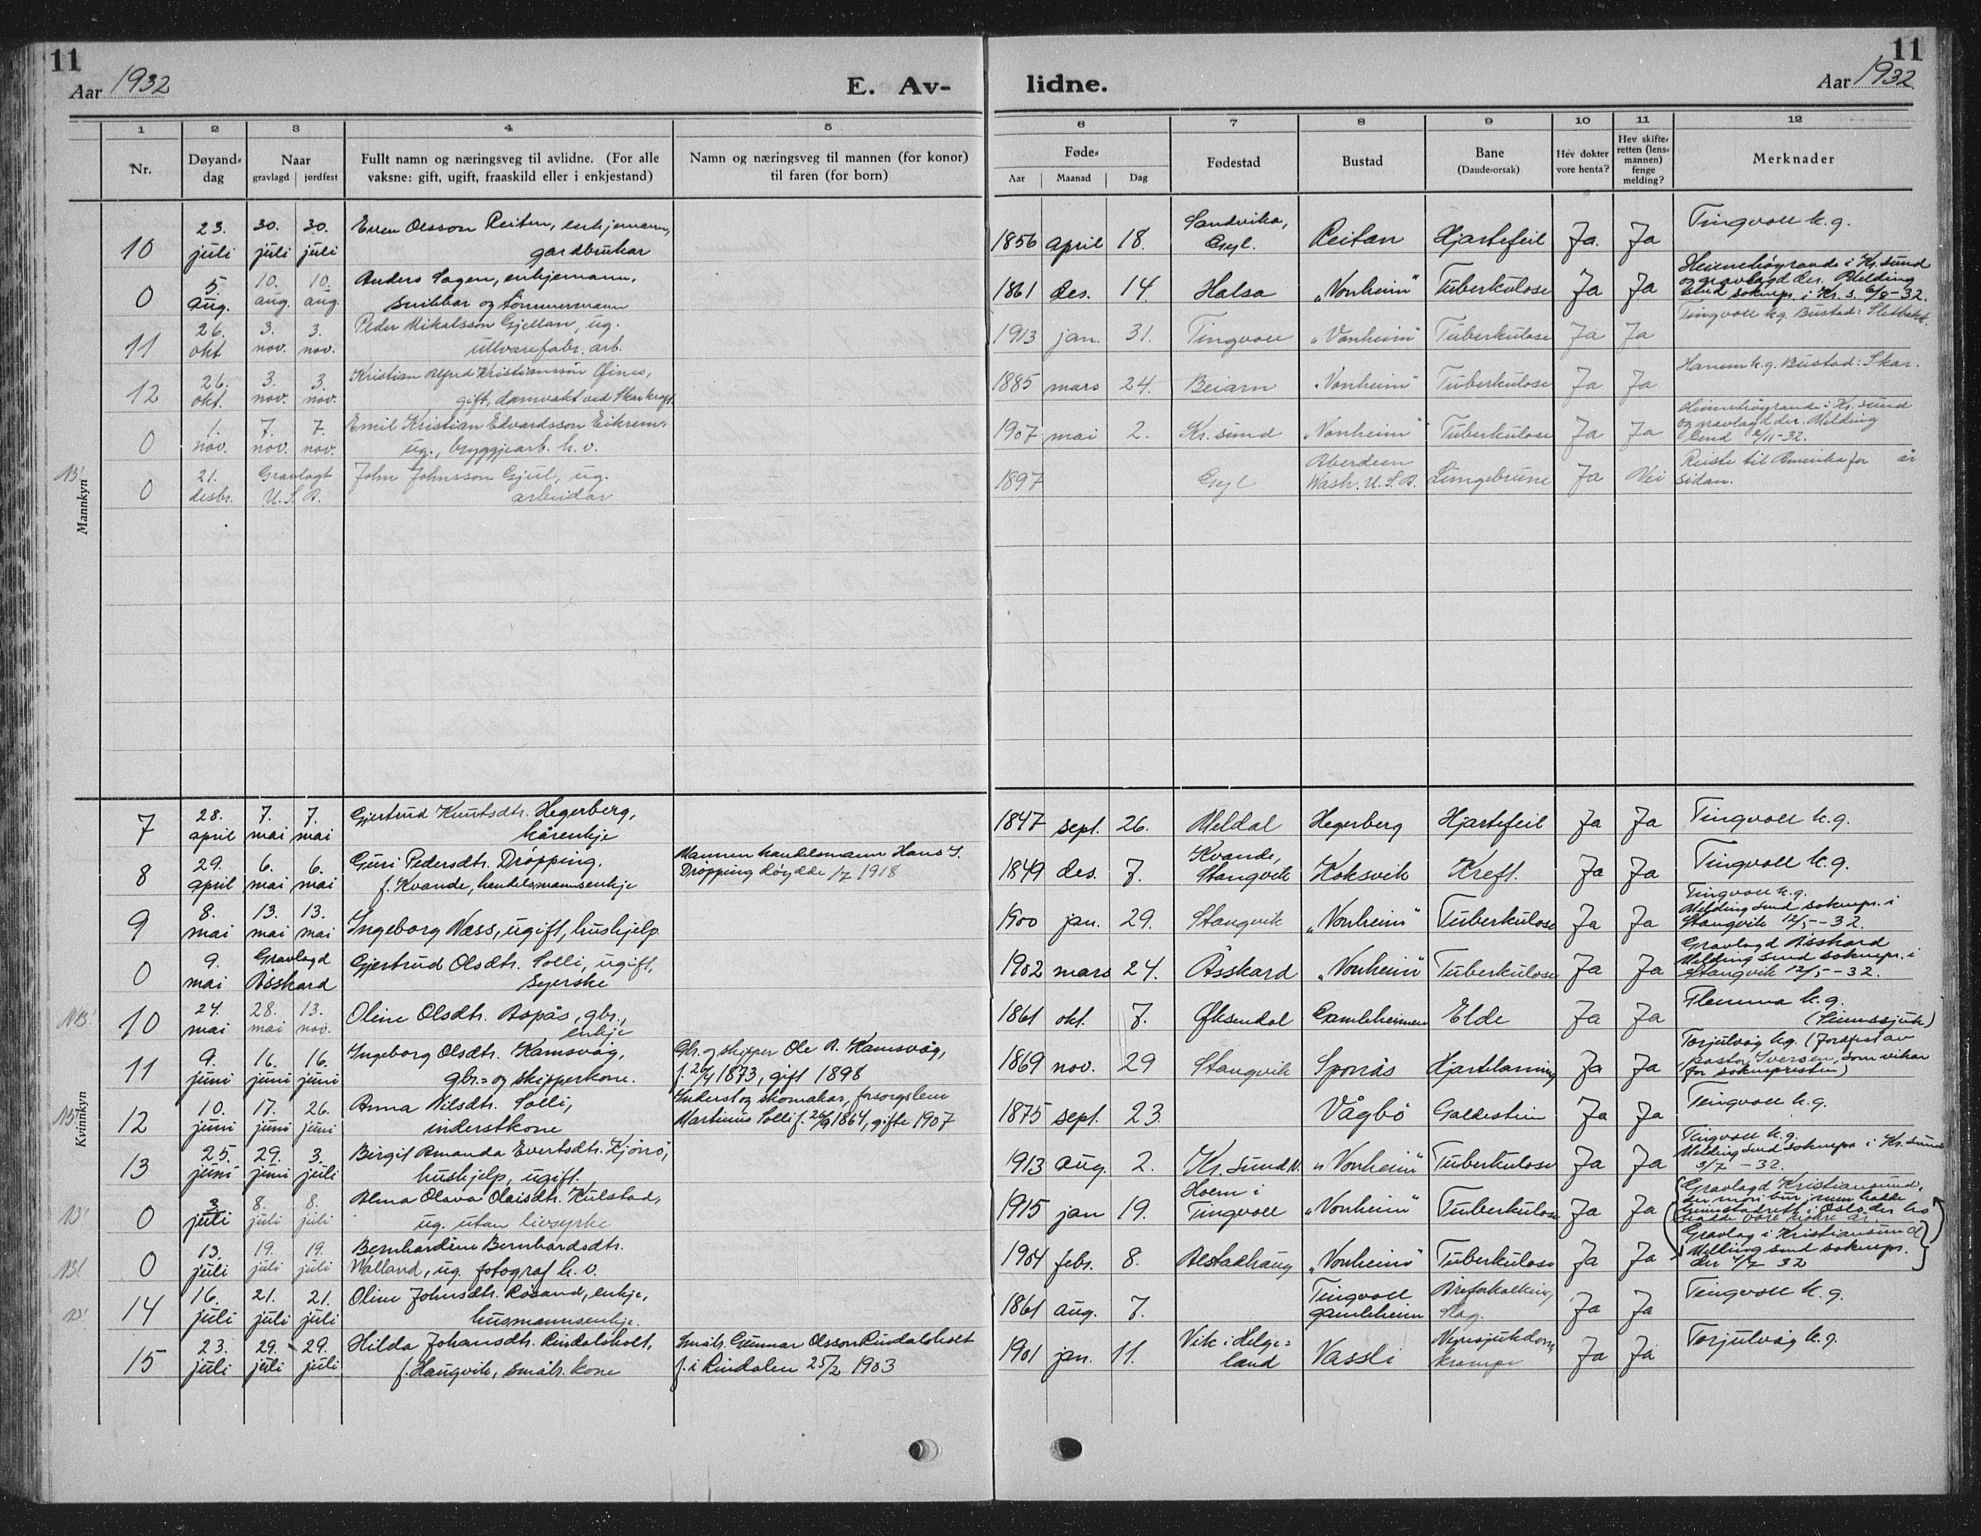 11
Aar 1932
E. Av-
lidne.
11
Aar 1932
1 2 3 4 5 6 7 8 9 10 11 12
Nr.
Døyand-
dag
Naar
gravlagd jordfest
Fullt namn og næringsveg til avlidne. (For alle
vaksne: gift, ugift, fraaskild eller i enkjestand)
Namn og næringsveg til mannen (for konor)
til faren (for born)
Føde-
Aar Maanad Dag
Fødestad
Bustad
Bane
(Daude-orsak)
Hev dokter
vore henta?
Hev skifte-
retten (lens-
mannen)
fenge
melding?
Merknader
Mannkyn
10 23. juli 30. juli 30. juli
Olsson Reiten, enkjemann,
gardbrukar
1856 april 18. Sandvika, Reitan Hjartefeil Ja. Ja Tingvoll k.g.
0 5. aug. 10. aug. 10. aug.
Anders Hagen, enkjemann,
snikkar og tømmermann
1861 des. 14 Halsa "Vonheim" Tuberkulose Ja Ja
Heimehøyrande i Kr. sund
og gravlagd der. Melding
send soknepr. i Kr. s. 6/8-32.
11 26. okt 3. nov. 3. nov.
Peder Mikalsson Gjellan, ug.
ullvarefabr. arb.
1913 jan. 31. Tingvoll "Vonheim" Tuberkulose Ja Ja
Tingvoll k.g. Bustad:
12 26. okt. 3. nov. 3. nov.
Kristian Alfred Kristiansson
gift, damvakt ved Skar kraft
1885 mars 24. Beiarn "Vonheim" Tuberkulose Ja Ja
Hanem k.g. Bustad: Skar.
0 1. nov. 7. nov. 7. nov.
Emil Kristian Edvardsson Eikrem,
ug., bryggjearb. h.v.
1907 mai 2. Kr. sund "Vonheim" Tuberkulose Ja Ja
Heimehøyrande i Kr. sund
og gravlagd der. Melding
send 2/11-32.
0 21. desbr. Gravlagt U.S.A.
John Johnsson Gjul, ug.
arbeidar
1897 Aberdeen
Wash. U.S.A. Lungebrune Ja Nei
Reiste til Amerika for år
sidan.
Kvinnkyn
7 28. april 7. mai 7. mai
Gjertrud Knutsdtr. Hegerberg,
kårenkje
1847 sept. 26. Meldal Hegerberg Hjartefeil Ja Ja Tingvoll k.g.
8 29. april 6. mai 6. mai
Guri Pedersdtr. Drøpping.
f. Kvande, handelsmannsenkje
Mannen handelsmann Hans J.
Drøpping døydde 1/7 1918
1849 des. 7. Kvande,
Stangvik Koksvik Kreft. Ja Ja Tingvoll k.g.
9 8. mai 13. mai 13. mai
Ingeborg Næss, ugift, hushjelp
1900 jan. 29. Stangvik "Vonheim" Tuberkulose Ja Ja
Tingvoll k.g.
Melding send soknepr. i
Stangvik 12/5-32.
0 9. mai Gravlagd Åsskard
Gjertrud Olsdtr. Solli, ugift,
syerske
1902 mars 24. Åsskard "Vonheim" Tuberkulose Ja Ja
Gravlagd Åsskard
Melding send soknepr. i
Stangvik 12/5-32.
10 24. mai 28. mai 13. nov.
Oline Olsdtr. Aspås, gbr.,
enkje
1861 okt. 7. Øksendal Gamleheimen Elde Ja Ja
Flemma k.g.
(Sinnssjuk)
11 9. juni 16. juni 16. juni
Ingeborg Olsdtr. Kamsvåg,
gbr.- og skipperkone.
Gbr. og skipper Ole A. Kamsvåg,
f. 26/4 1873, gift 1898
1869 nov. 29 Stangvik Sponås Hjartelaming Ja Ja
Torjulvåg k.g. (Jordfest av
pastor Iversen, som vikar
for sokneprestin)
12 10. juni 17. juni 26. juni
Anna Nilsdtr. Solli,
inderstkone
Inderst og skomakar, forsorgslem
Martinus Solli f. 26/9 1864, gifte 1907
1875 sept. 23. Vågbø Galdestein Ja Ja Tingvoll k.g.
13 25. juni 29. juni 3. juli
Birgit Amanda Evertsdtr. Kjörsö,
hushjelp, ugift.
1913 aug. 2. Kr. sund N. "Vonheim" Tuberkulose Ja Ja
Tingvoll k.g.
Melding send sokneprs i Kr. sund
3/7-32.
0 3. juli 8. juli 8. juli
Alma Olava Olaisdtr. Kulstad,
ug. utan livsyrke
1915 jan 19. Hoem i
Tingvoll "Vonheim" Tuberkulose Ja Ja
Gravlagd Kristiansund,
0 13. juli 19. juli 19. juli
Bernhardine Bernhardsdtr.
Walland, ug. fotograf h.v.
1904 febr. 8. Alstadhaug "Vonheim" Tuberkulose Ja Ja
Gravlag i Kristiansund
Melding send soknepr.
14 16. juli 21. juli 21. juli
Oline Johnsdtr. Røsand, enkje,
husmannsenkje.
1861 aug. 7. Tingvoll
gamleheim Åreforkalkning,
slag. Ja Ja Tingvoll k.g.
15 23. juli 29. juli 29. juli
Hilda Johansdtr. Rindalsholt,
f. Haugvik, småbr. kone
Småbr. Gunnar Olsson Rindalsholt
f. i Rindalen 25/2 1903
1901 jan. 11. Vik i Helge-
land Vassli Nyresjukdom
krampe Ja Ja Torjulvåg k.g.